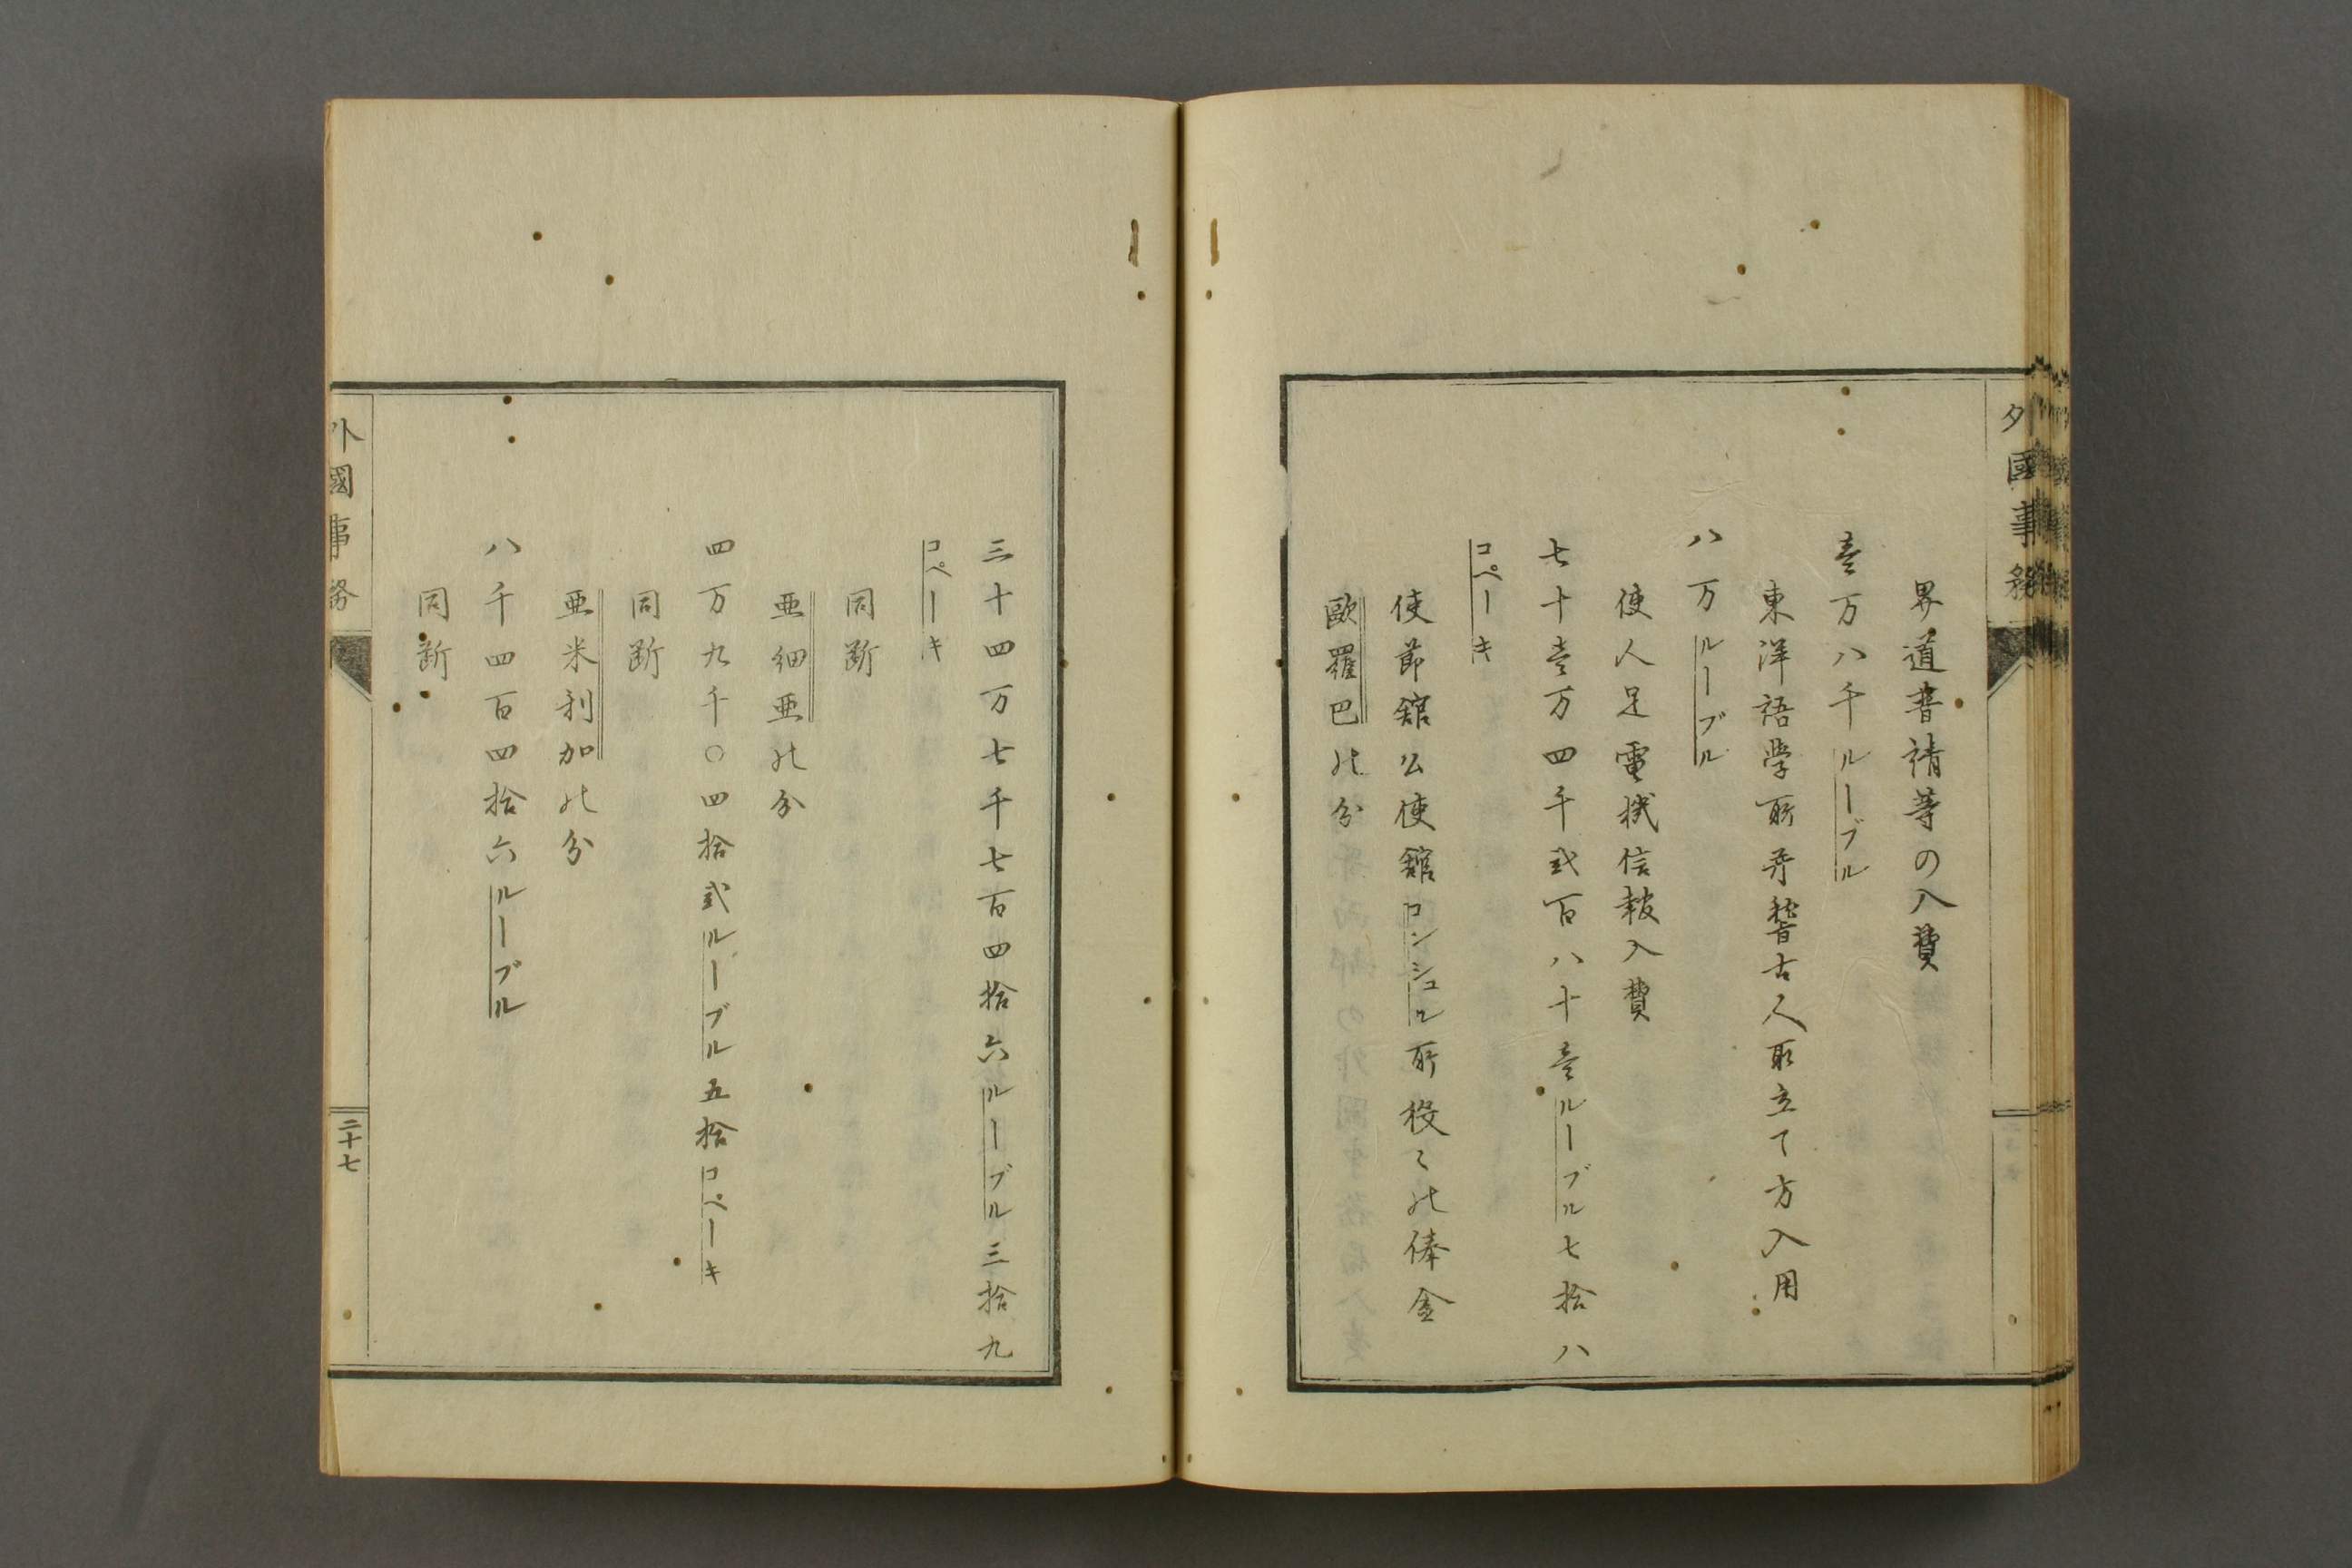 外國事務
界道書請等の入費
壱万八千ルーブル
東洋語学所并稽古人取立て方入用
八万ルーブル
使人足電機信報入費
七十壱万四千弐百八十壱ルーブル七拾八
コペーキ
使節舘公使舘コンシュル所役々の俸金
歐羅巴の分
三十四万七千七百四拾六ルーブル三拾九
コペーキ
同断
亜細亜の分
四万九千〇四拾弐ルーブル五拾コペーキ
同断
亜米利加の分
八千四百四拾六ルーブル
同断
外國事務
二十七